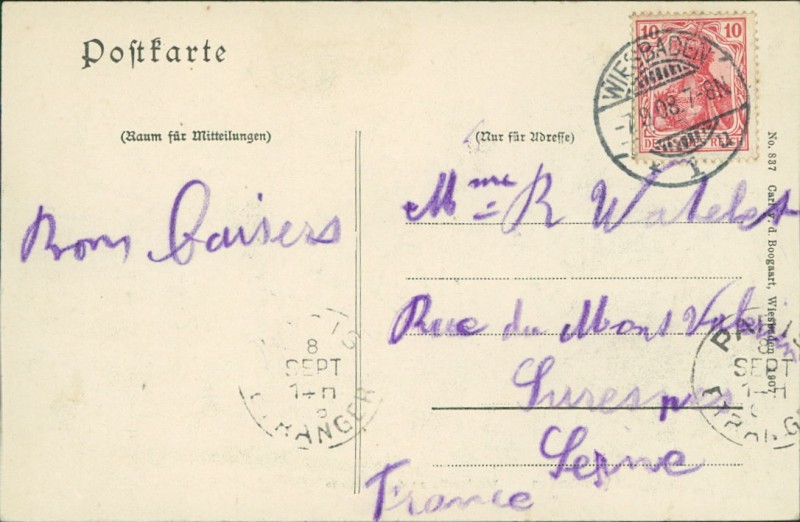 Postkarte
(Raum für Mitteilungen)
(Nur für Adresse)
10 10
WIESBADEN
9.08.7-8N
* 1 a
DEUTSCHES REICH
Bons baisers
Mme R Watelet
Rue du Mont Valérien
Suresnes
Seine
France
No. 837 Carl v. d. Boogaart, Wiesbaden 1907.
PARIS
8
SEPT
ETRANGER
PARIS
8
SEPT
ETRANGER